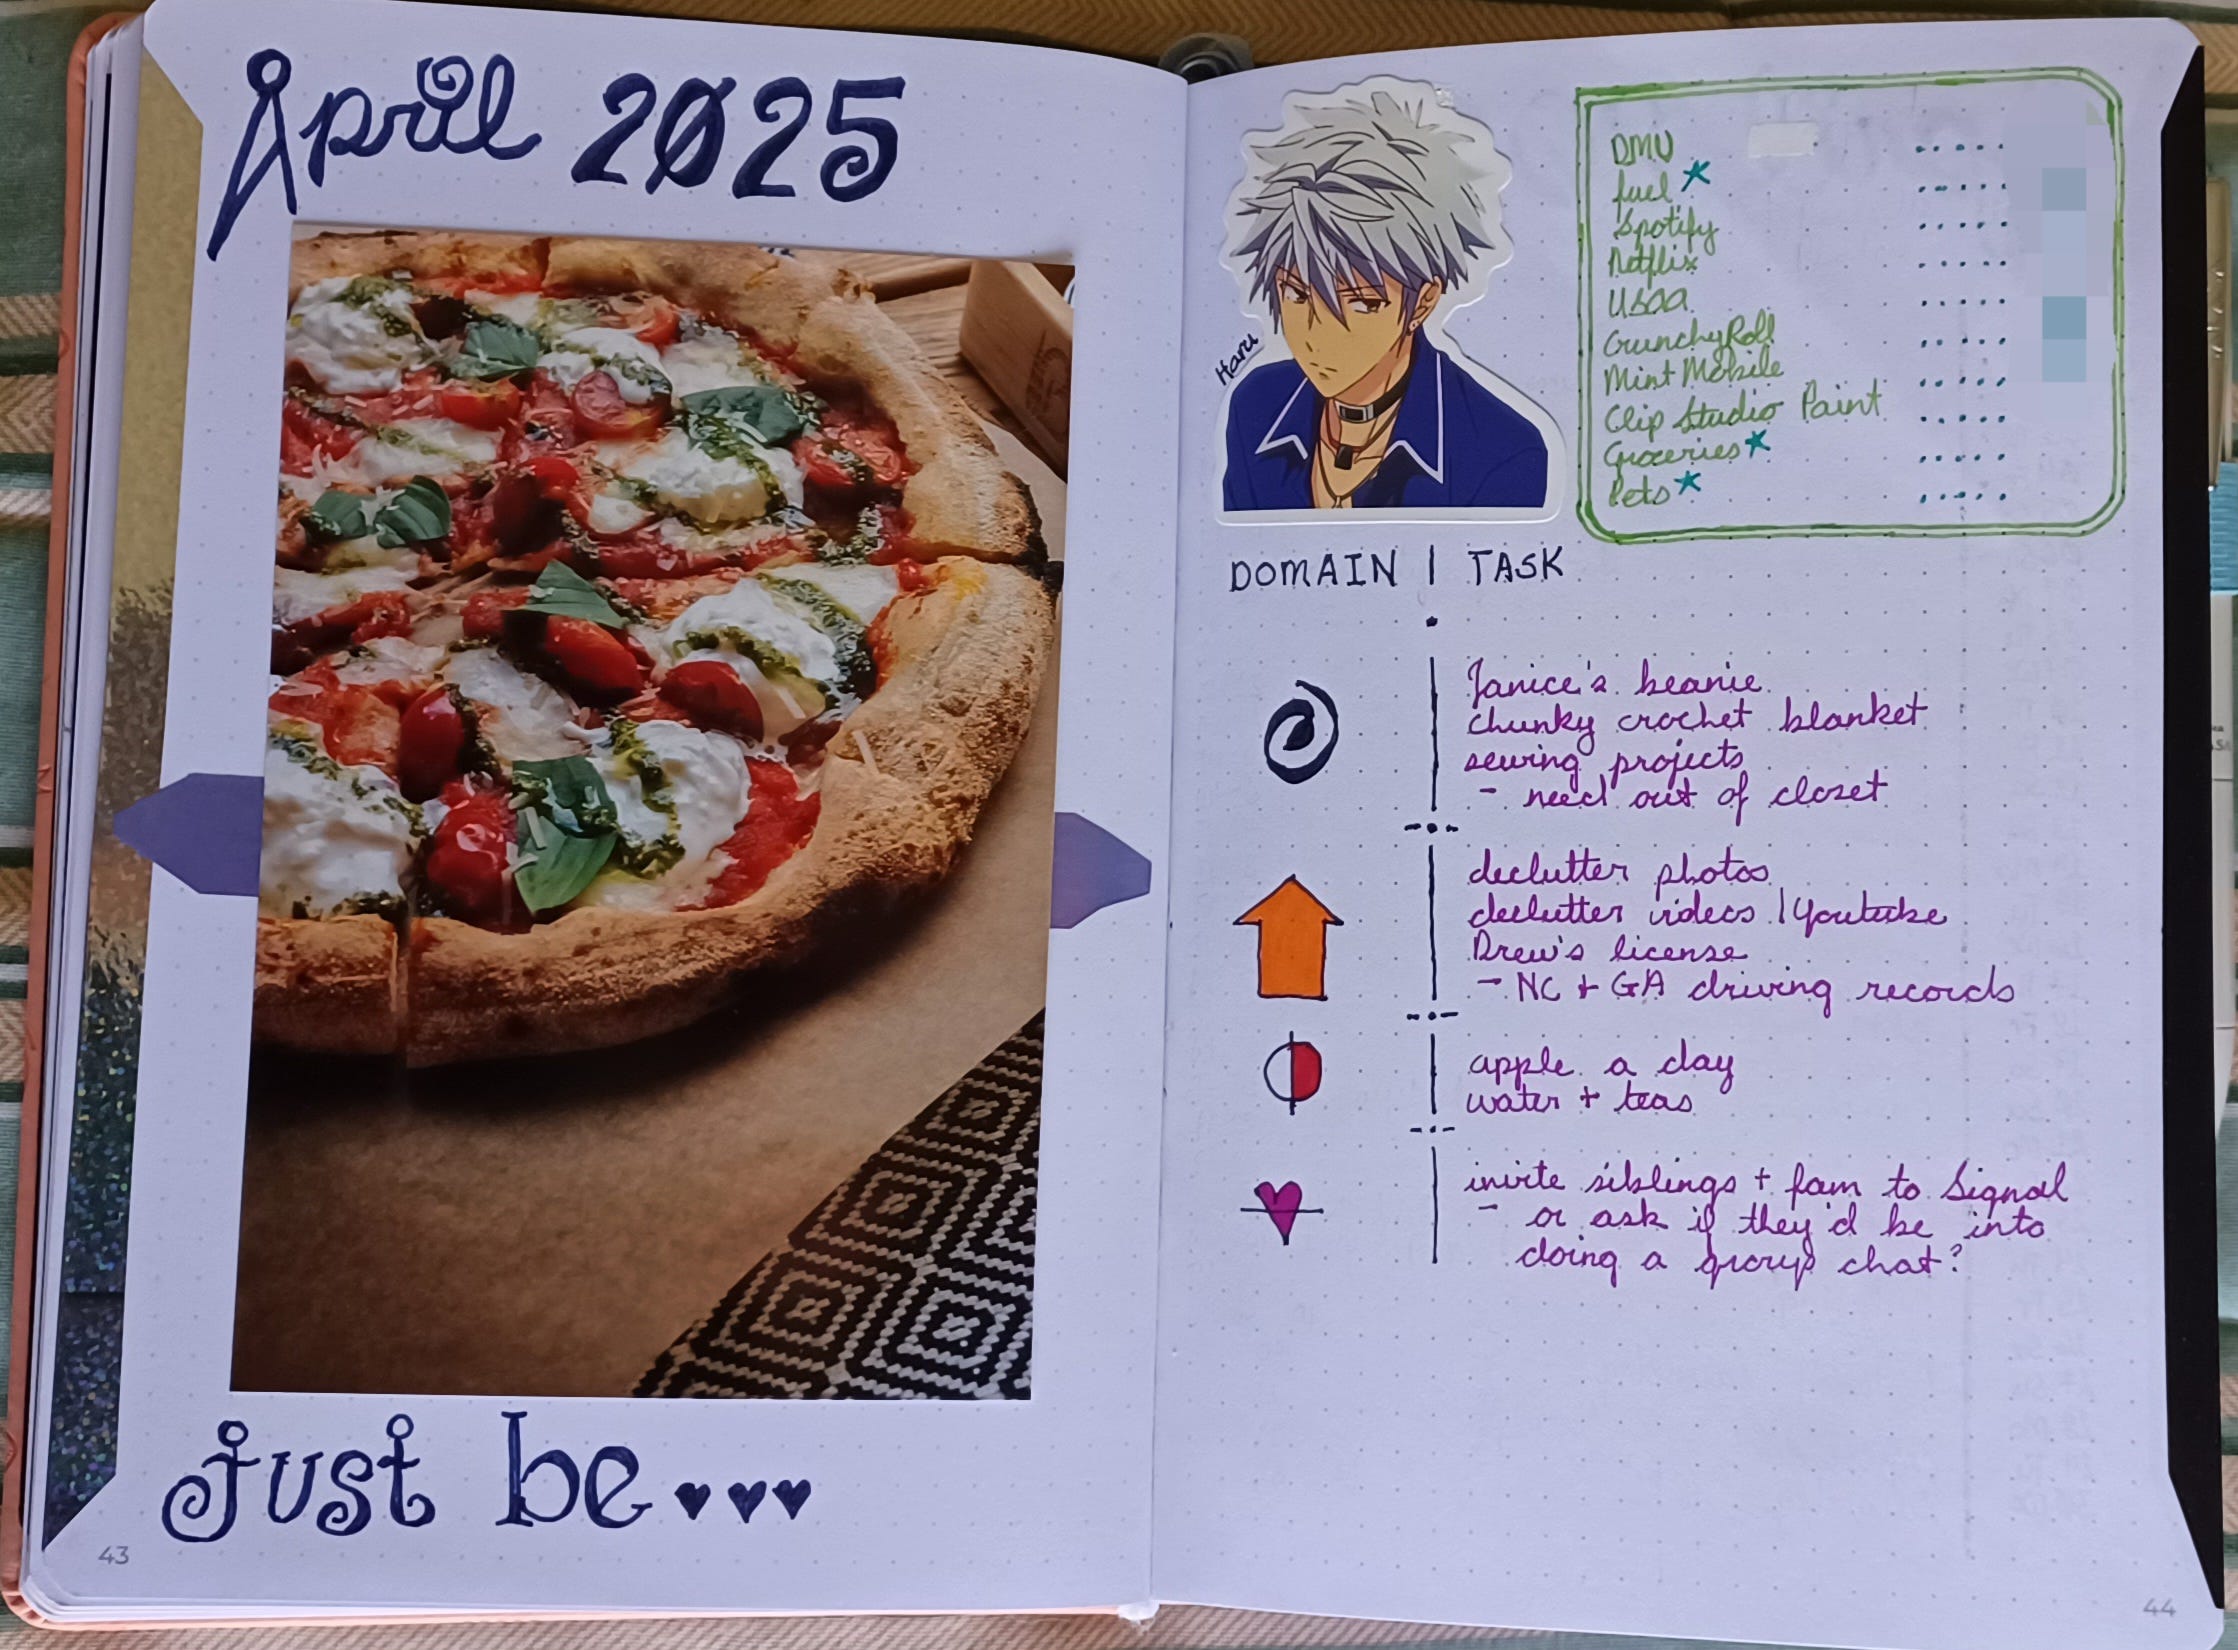 April 2025
just be...
43
Haru
DMV
fuel*
Spotify
Netflix
USAA
CrunchyRoll
Mint Mobile
Clip Studio Paint
Groceries*
Pets*
DOMAIN | TASK
Janice's beanie
chunky crochet blanket
sewing projects
- need out of closet
declutter photos
declutter videos | Youtube
Drew's license
- NC + GA driving records
apple a day
water + teas
invite siblings + fam to Signal
- or ask if they'd be into
doing a group chat?
44